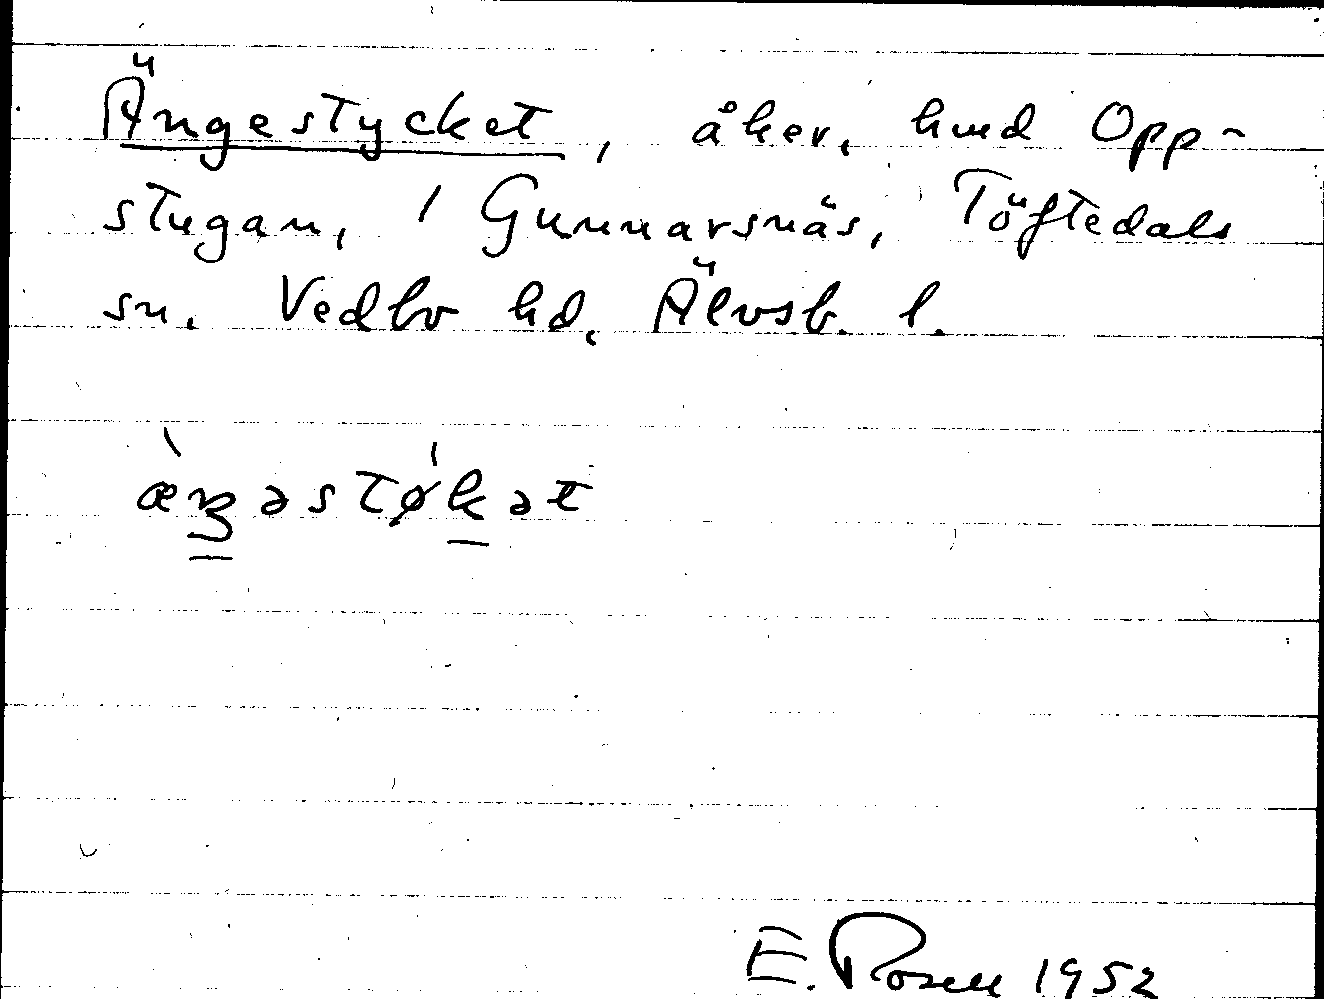 Ängestycket, åker, hmd Opp-
stugan, 1 Gunnarsnäs, Töftedals
sn. Vedbo hd, Älvsb. l.
æ̀ŋəstǿkət
E. Rosell 1952